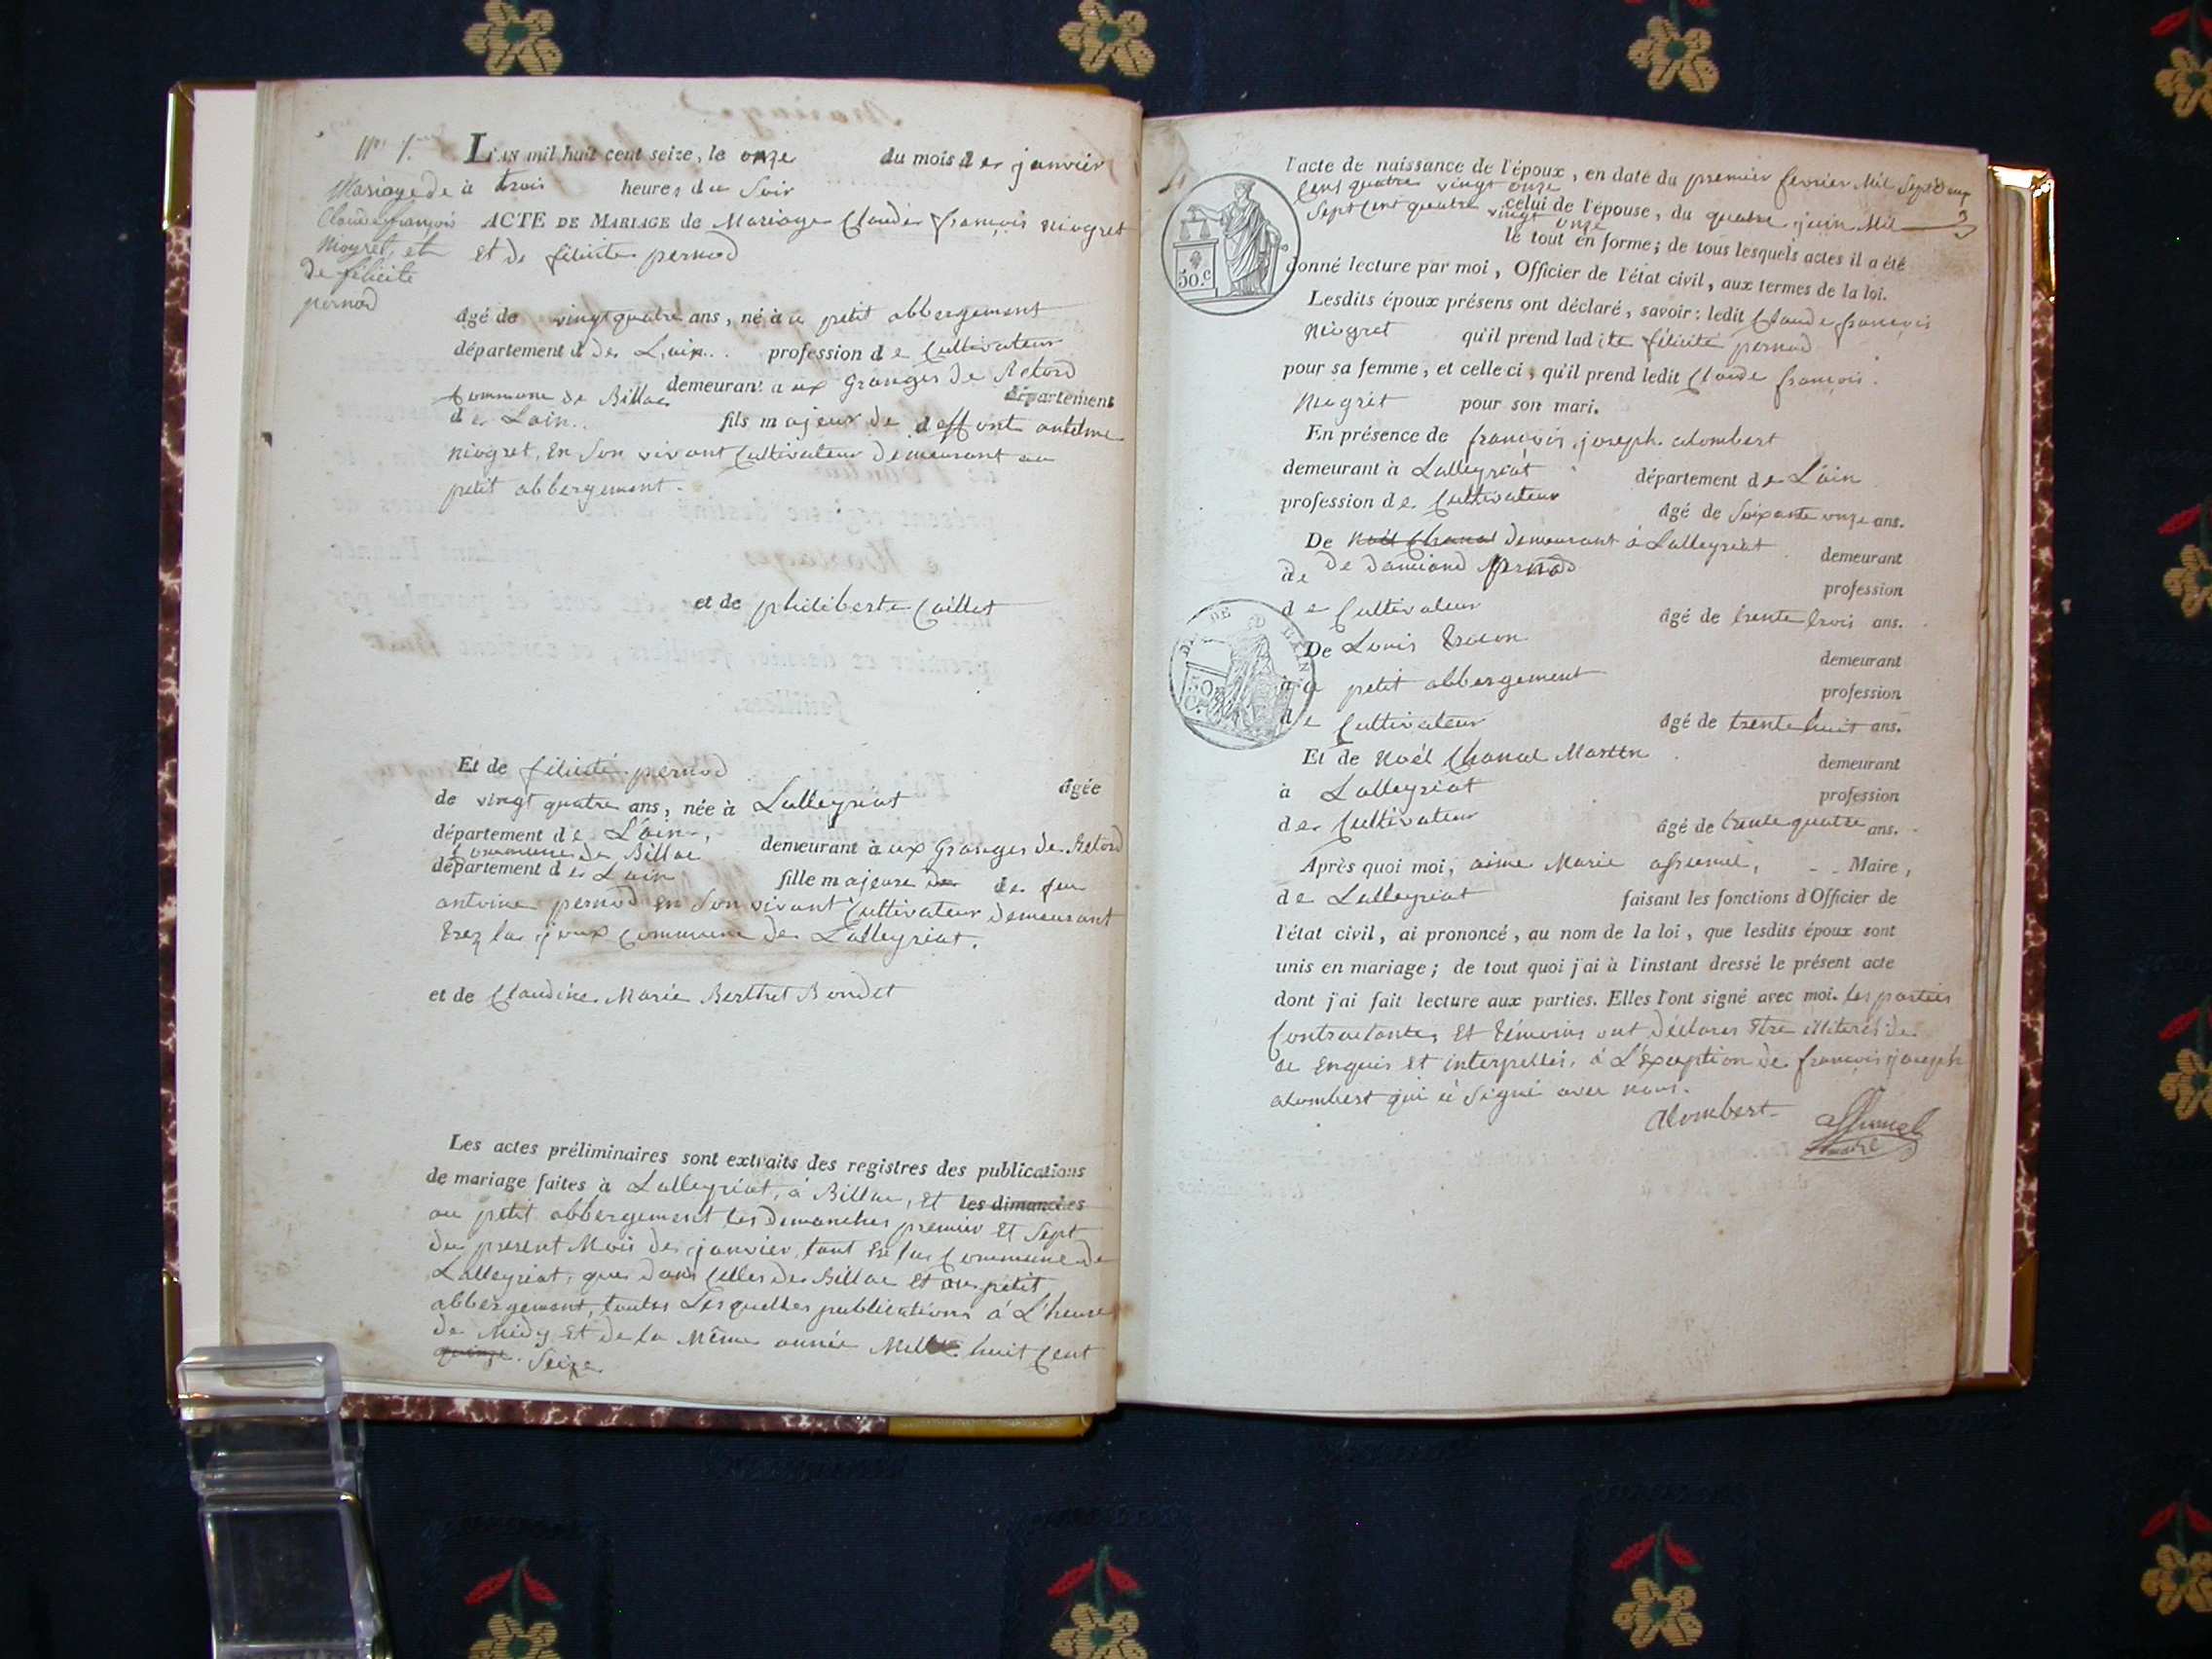 N.º 1.er
Mariage de
Claude françois
Niogret, et
de félicité
pernod
L'AN mil huit cent seize, le onze du mois de janvier
à trois heures du Soir
ACTE DE MARIAGE de Mariage Claude françois Niogret
et de félicité pernod
âgé de vingt quatre ans, né à u petit abbergement
département d de L'ain.. profession de Cultivateur
demeurant a ux Granges de Retord
Commune de Billac département
de Lain.. fils majeur de deffont antelme
niogret, En Son vivant Cultivateur demeurant au
petit abbergement.
et de philiberte Caillet
Et de félicité pernod âgée
de vingt quatre ans, née à Lalleyriat
département de L'ain, demeurant à ux Granges de Retord
Commune de Billac
département de Lain fille majeure de de feu
antoine pernod en Son vivant Cultivateur demeurant
Erez la joux Commune de Lalleyriat.
et de Claudine Marie Berthet Bondet
Les actes préliminaires sont extraits des registres des publications
de mariage faites à Lalleyriat, à Billac, et les dimanches
au petit abbergement les demanches premier et Sept
du present Mois de janvier, tant En la Commune de
Lalleyriat, que dans Celles de Billac et au petit
abbergement, toutes Lesquelles publications à L'heure
de Midy et de la Même année Mille huit Cent
quinze. Seize
l'acte de naissance de l'époux, en date du premier fevrier Mil Sept
Cent quatre vingt onze
celui de l'épouse, du quatre juin Mil
Sept Cent quatre vingt onze
le tout en forme; de tous lesquels actes il a été
donné lecture par moi, Officier de l'état civil, aux termes de la loi.
50.c
Lesdits époux présens ont déclaré, savoir: ledit Claude françois
Niogret qu'il prend lad ite félicité pernod
pour sa femme, et celle ci, qu'il prend ledit Claude françois
Niogret pour son mari.
En présence de françois joseph alombert
demeurant à Lalleyriat département de L'ain
profession de Cultivateur âgé de Soixante onze ans.
De Noël Chanal demeurant à Lalleyriat demeurant
à de de pernod
profession
de Cultivateur âgé de trente trois ans.
De Louis demeurant
à u petit abbergement profession
de Cultivateur âgé de trente huit ans.
50 C.
Et de Noël Chanal Martin demeurant
à Lalleyriat profession
de Cultivateur âgé de trente quatre ans.
Après quoi moi, aime Marie Maire,
de Lalleyriat faisant les fonctions d'Officier de
l'état civil, ai prononcé, au nom de la loi, que lesdits époux sont
unis en mariage; de tout quoi j'ai à l'instant dressé le présent acte
dont j'ai fait lecture aux parties. Elles l'ont signé avec moi. les parties
Contractantes et témoins ont déclarés être illiterés de
ce Enquis et interpellés, à L'Exception de françois joseph
alombert qui à Signé avec nous.
alombert
maire